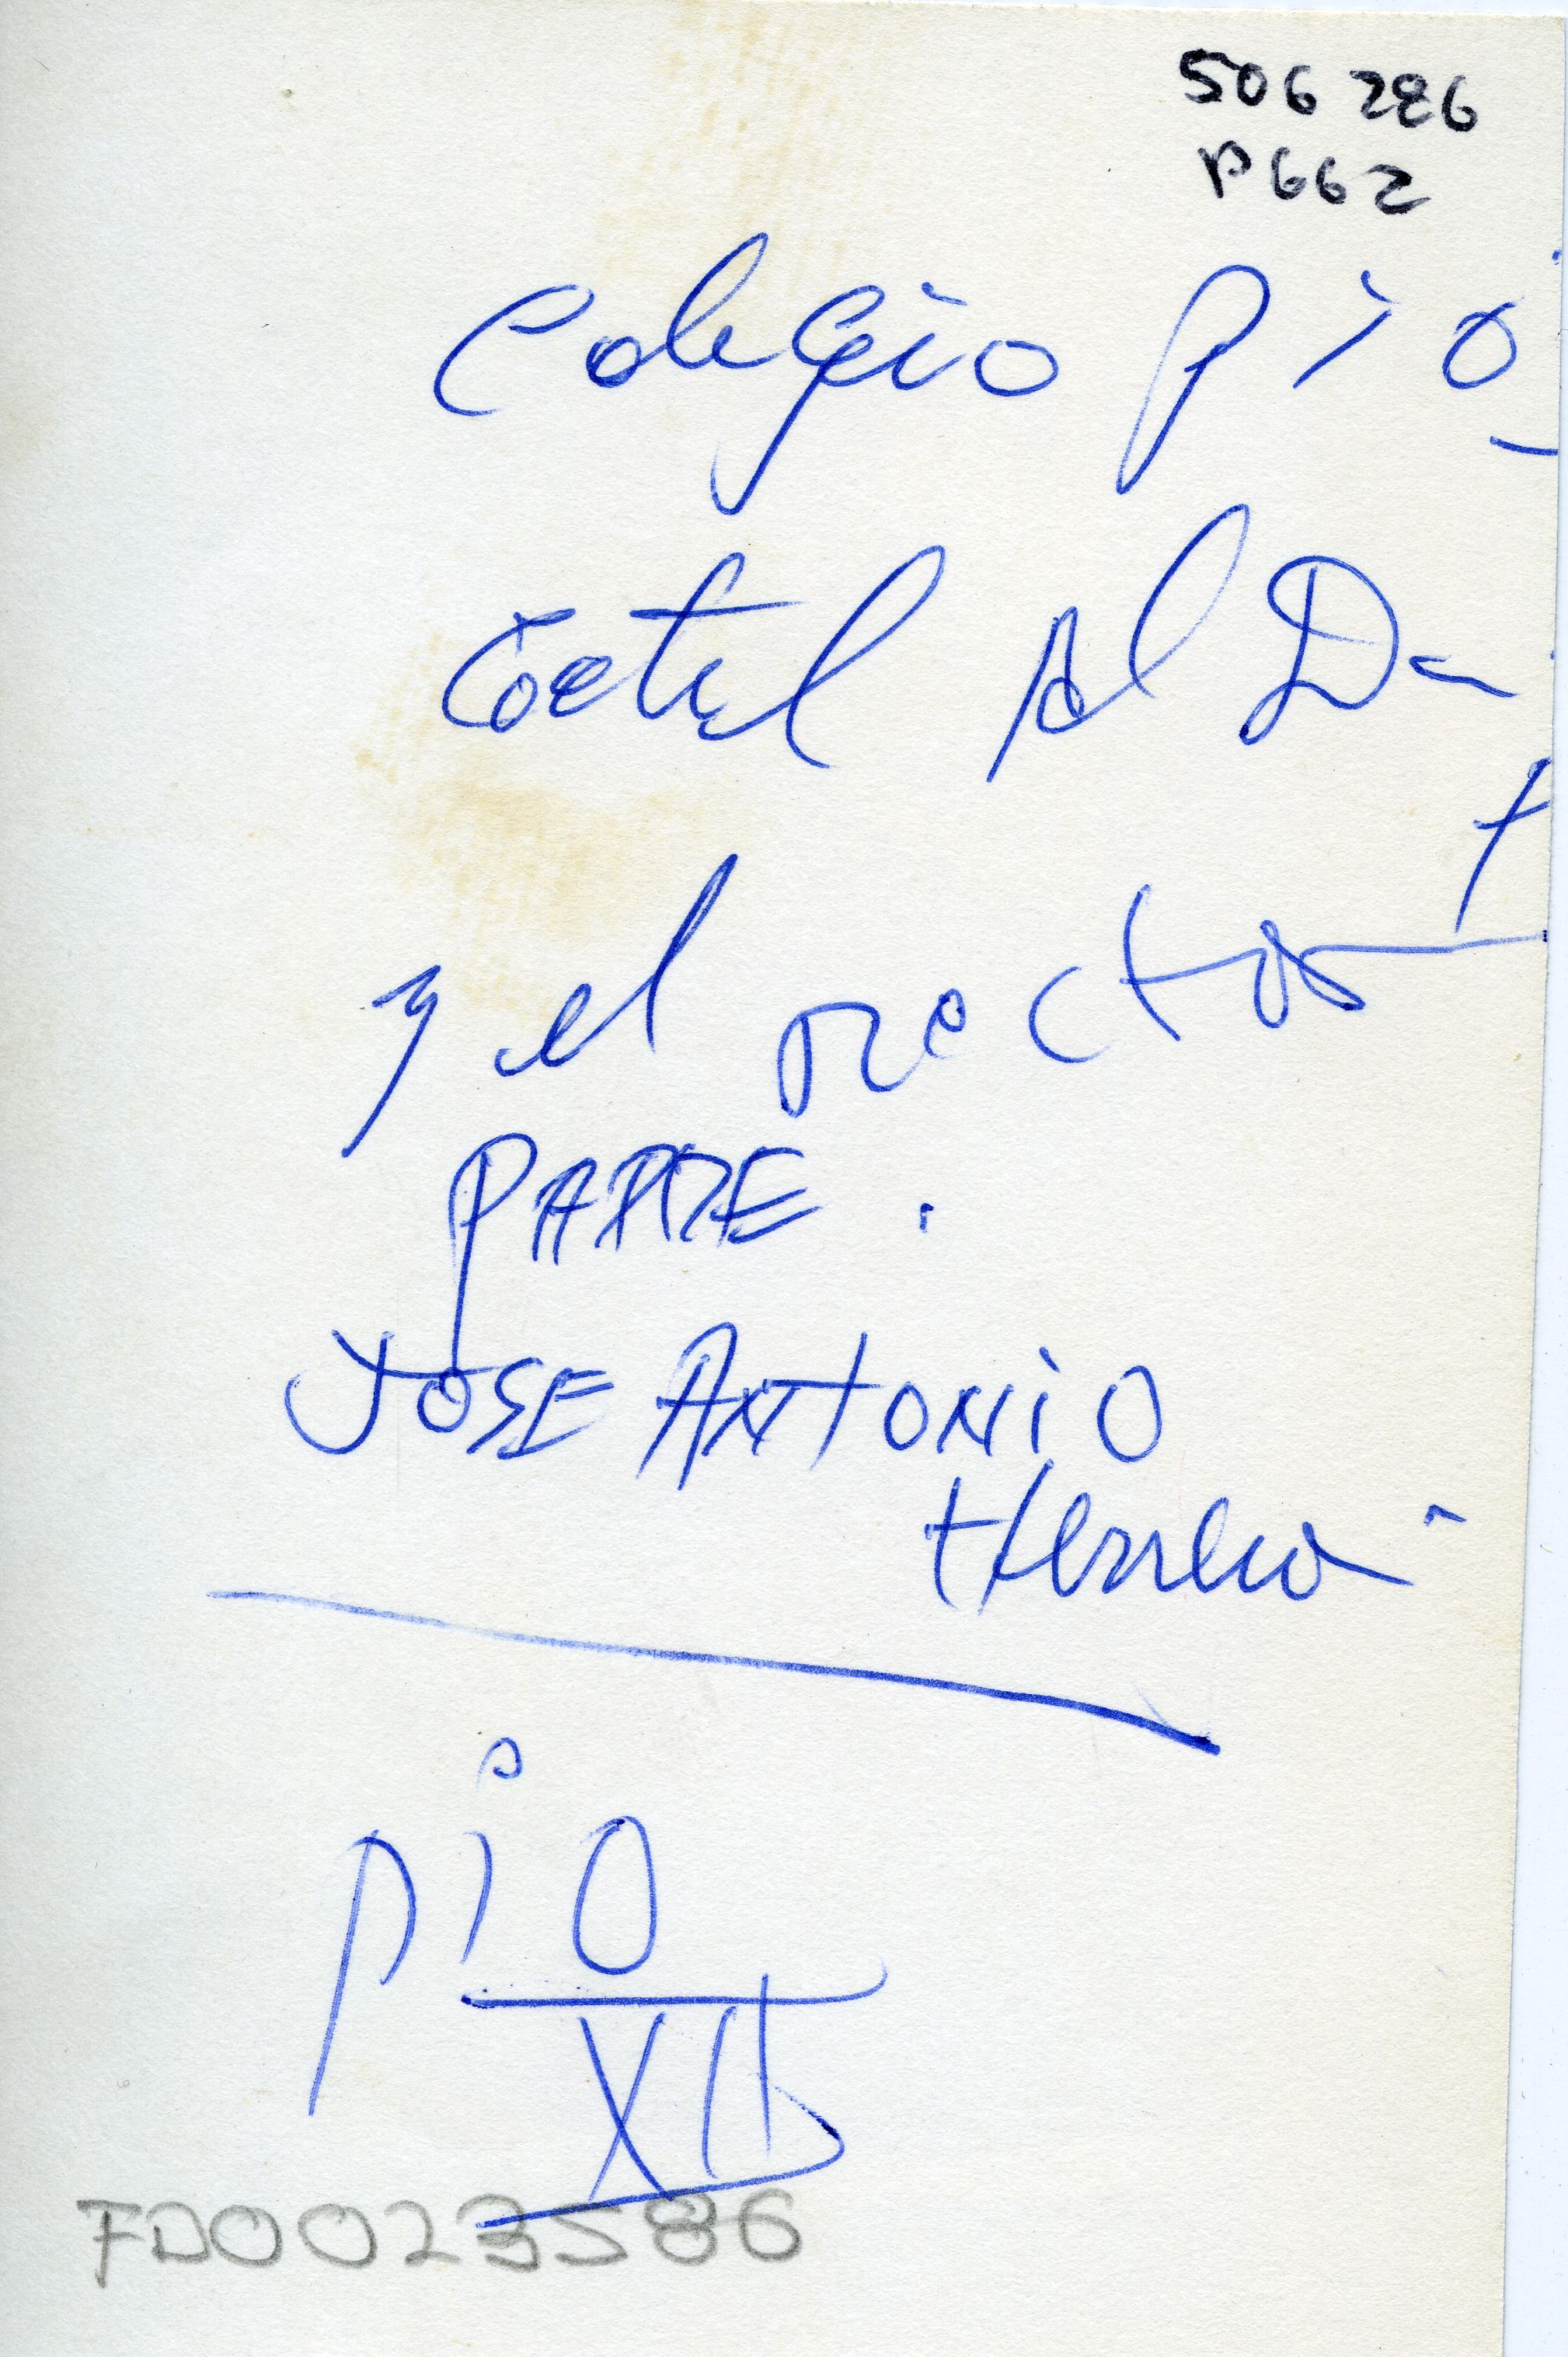 506286
P662
Colegio Pio
Coctel Al Da
y el Rector
PADRE .
JOSE ANTONIO
Herrera
Pio
XII
FD0023586